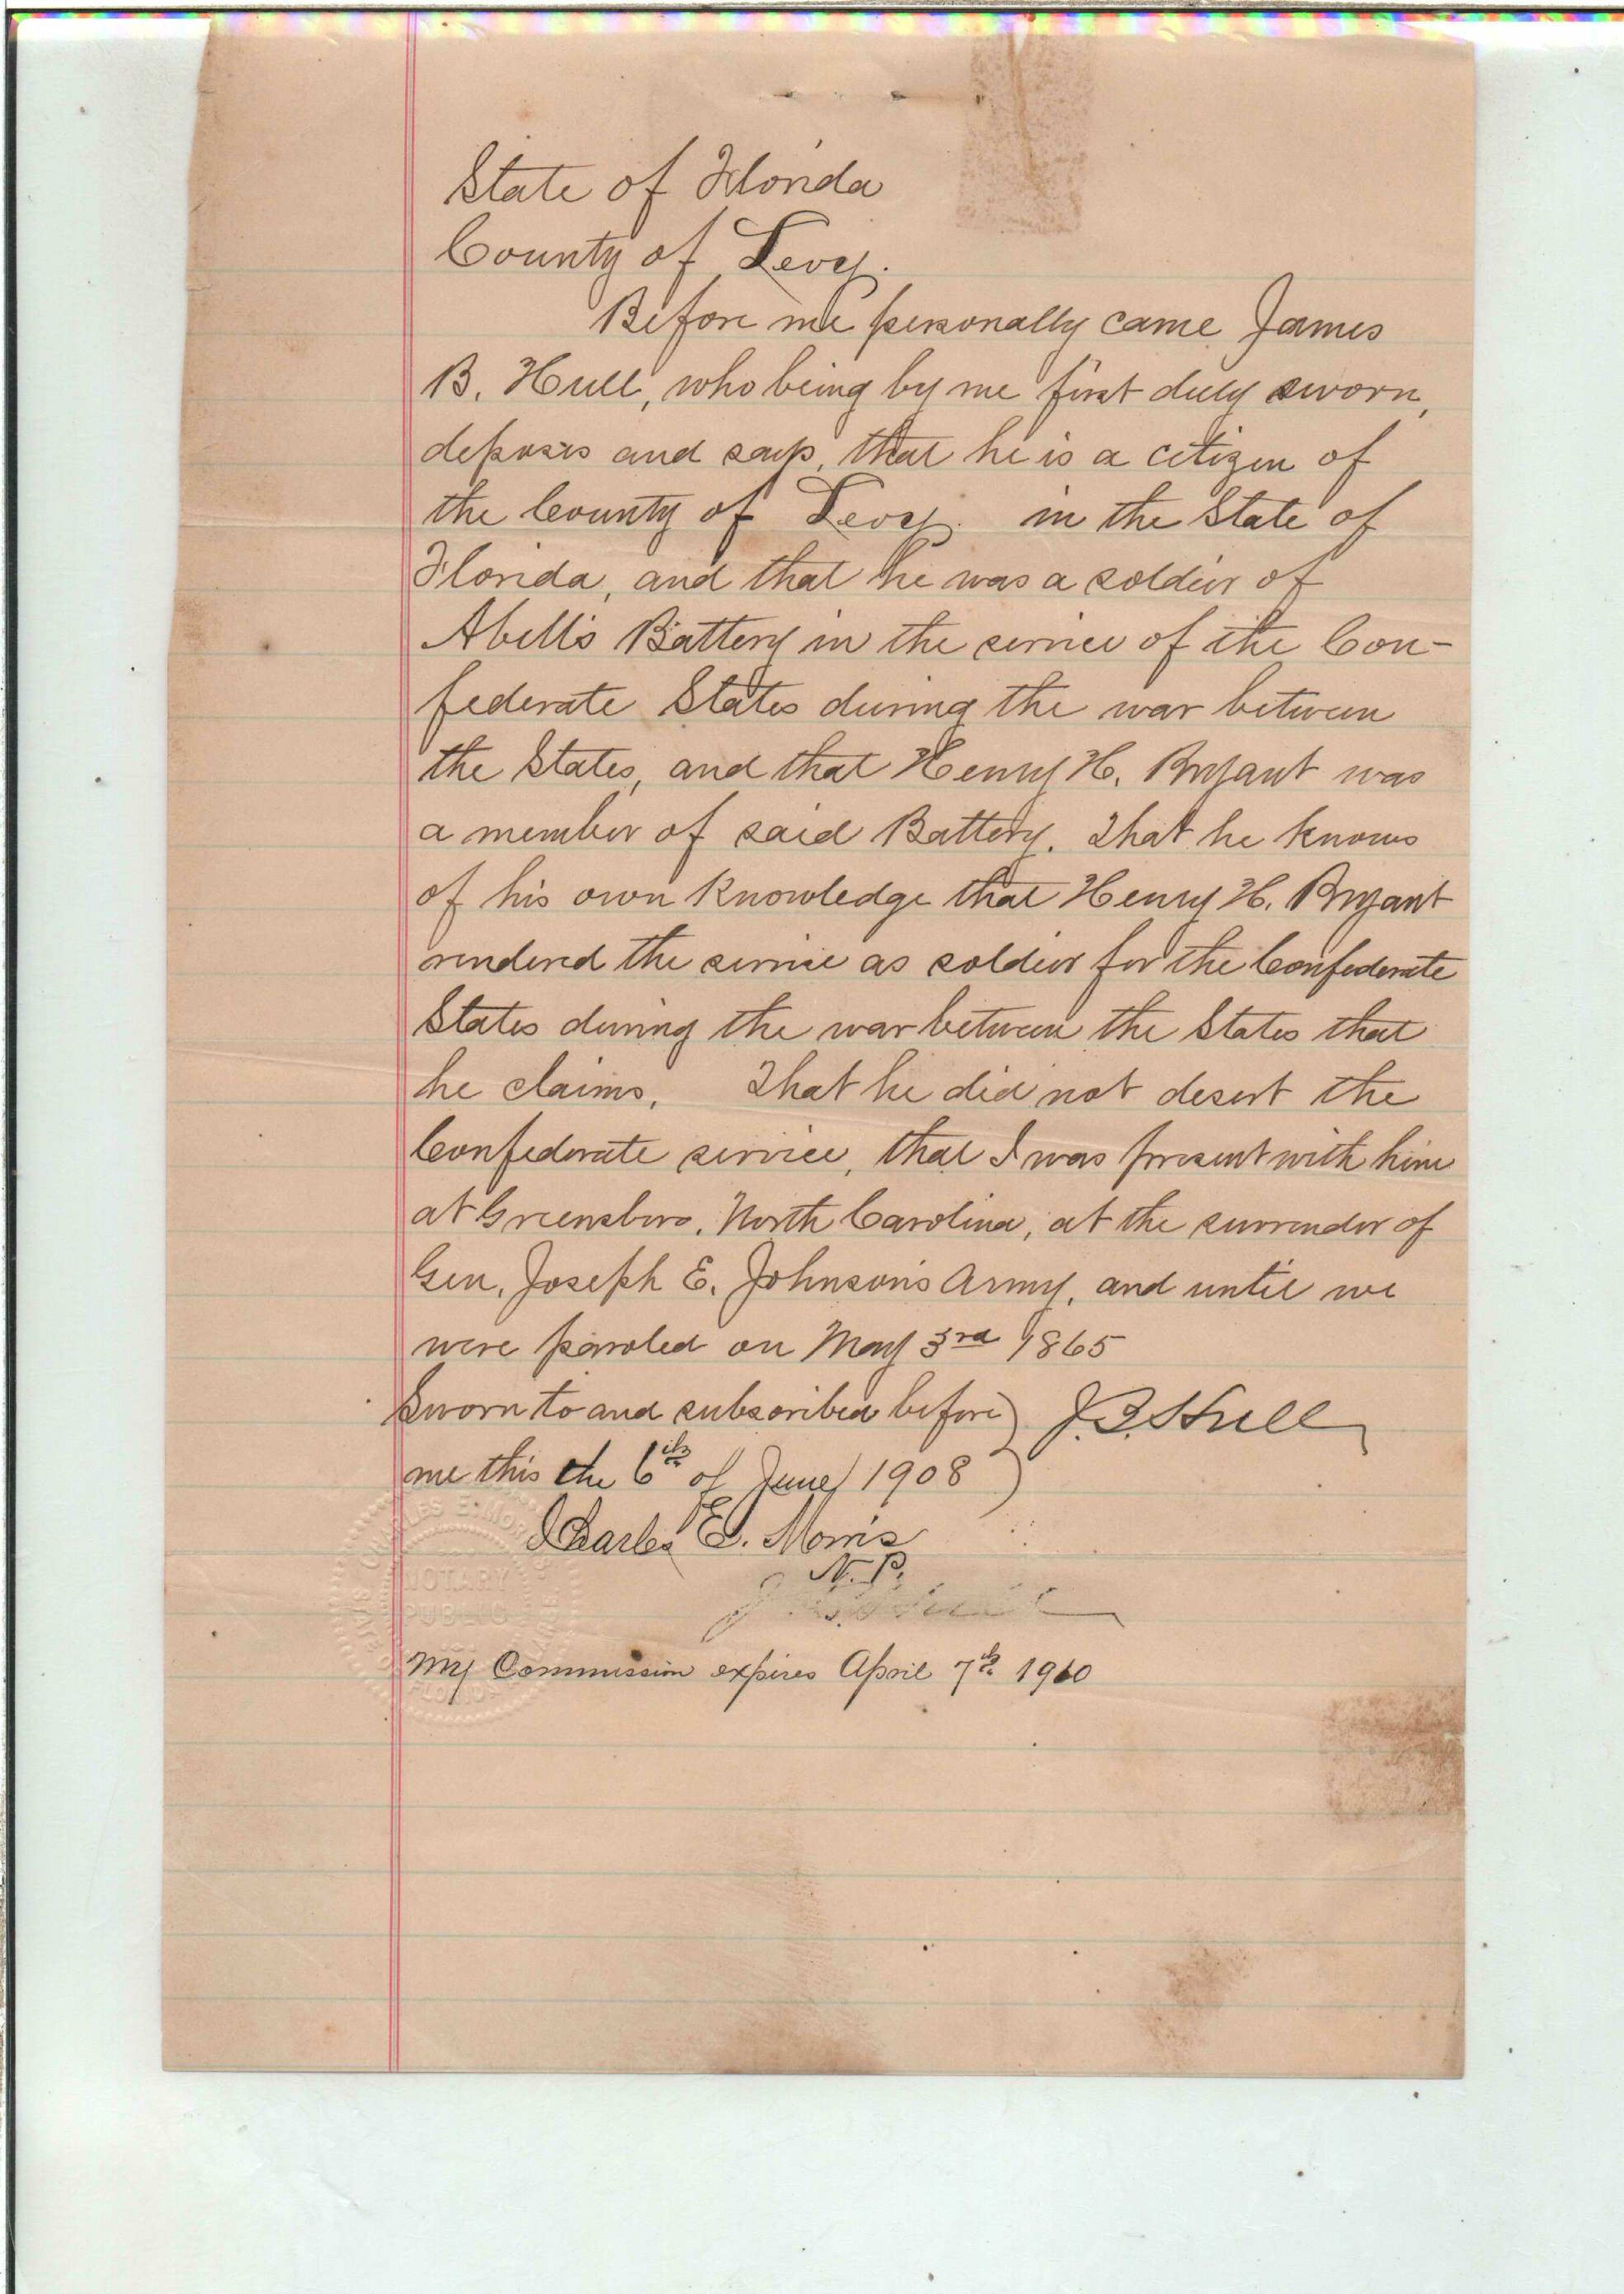 State of Florida
County of Levy.
Before me personally came James
B. Hull, who being by me first duly sworn,
deposes and says, that he is a citizen of
the County of Levy. in the State of
Florida, and that he was a soldier of
Abell's Battery in the service of the Con-
federate States during the war between
the States, and that Henry H. Bryant was
a member of said Battery. That he knows
of his own knowledge that Henry H. Bryant
rendered the service as soldier for the Confederate
States during the war between the States that
he claims. That he did not desert the
Confederate service, that I was present with him
at Greensboro, North Carolina, at the surrender of
Gen. Joseph E. Johnson's Army, and until we
were paroled on May 3rd 1865
Sworn to and subscribed before) J.B. Hull
me this the 6th of June 1908 )
Charles E. Morris
N. P.
My Commission expires April 7th 1910
CHARLES E. MOR
NOTARY
PUBLIC
FLORIDA